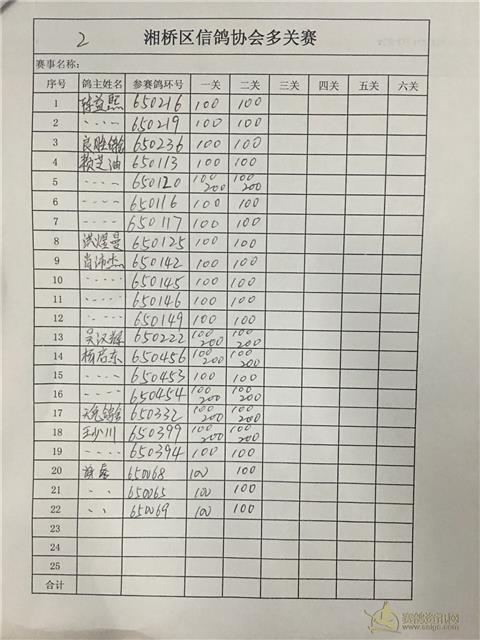 2 湘桥区信鸽协会多关赛
赛事名称：
序号 鸽主姓名 参赛鸽环号 一关 二关 三关 四关 五关 六关
1 陈益熙 650216 100 100
2 、、、、 650219 100 100
3 良胜鸽舍 650236 100 100
4 赖芝油 650113 100 100
5 、、、、 650120 100 200 100 200
6 、、、、 650116 100 100
7 、、、、 650117 100 100
8 洪煜曼 650125 100 100
9 肖沛杰 650142 100 100
10 、、、、 650145 100 100
11 、、、、 650146 100 100
12 、、、、 650149 100 100
13 吴汉辉 650222 100 200 100 200
14 杨后东 650456 100 200 100 200
15 、、、、 650453 100 100
16 、、、、 650454 100 200 100 200
17 天兔鸽舍 650332 100 200 100 200
18 王少川 650399 100 200 100 200
19 、、、、 650394 100 100
20 650068 100 100
21 、、 650065 100 100
22 、、 650069 100 100
23
24
25
合计
赛鸽资讯网
www.saigo.com